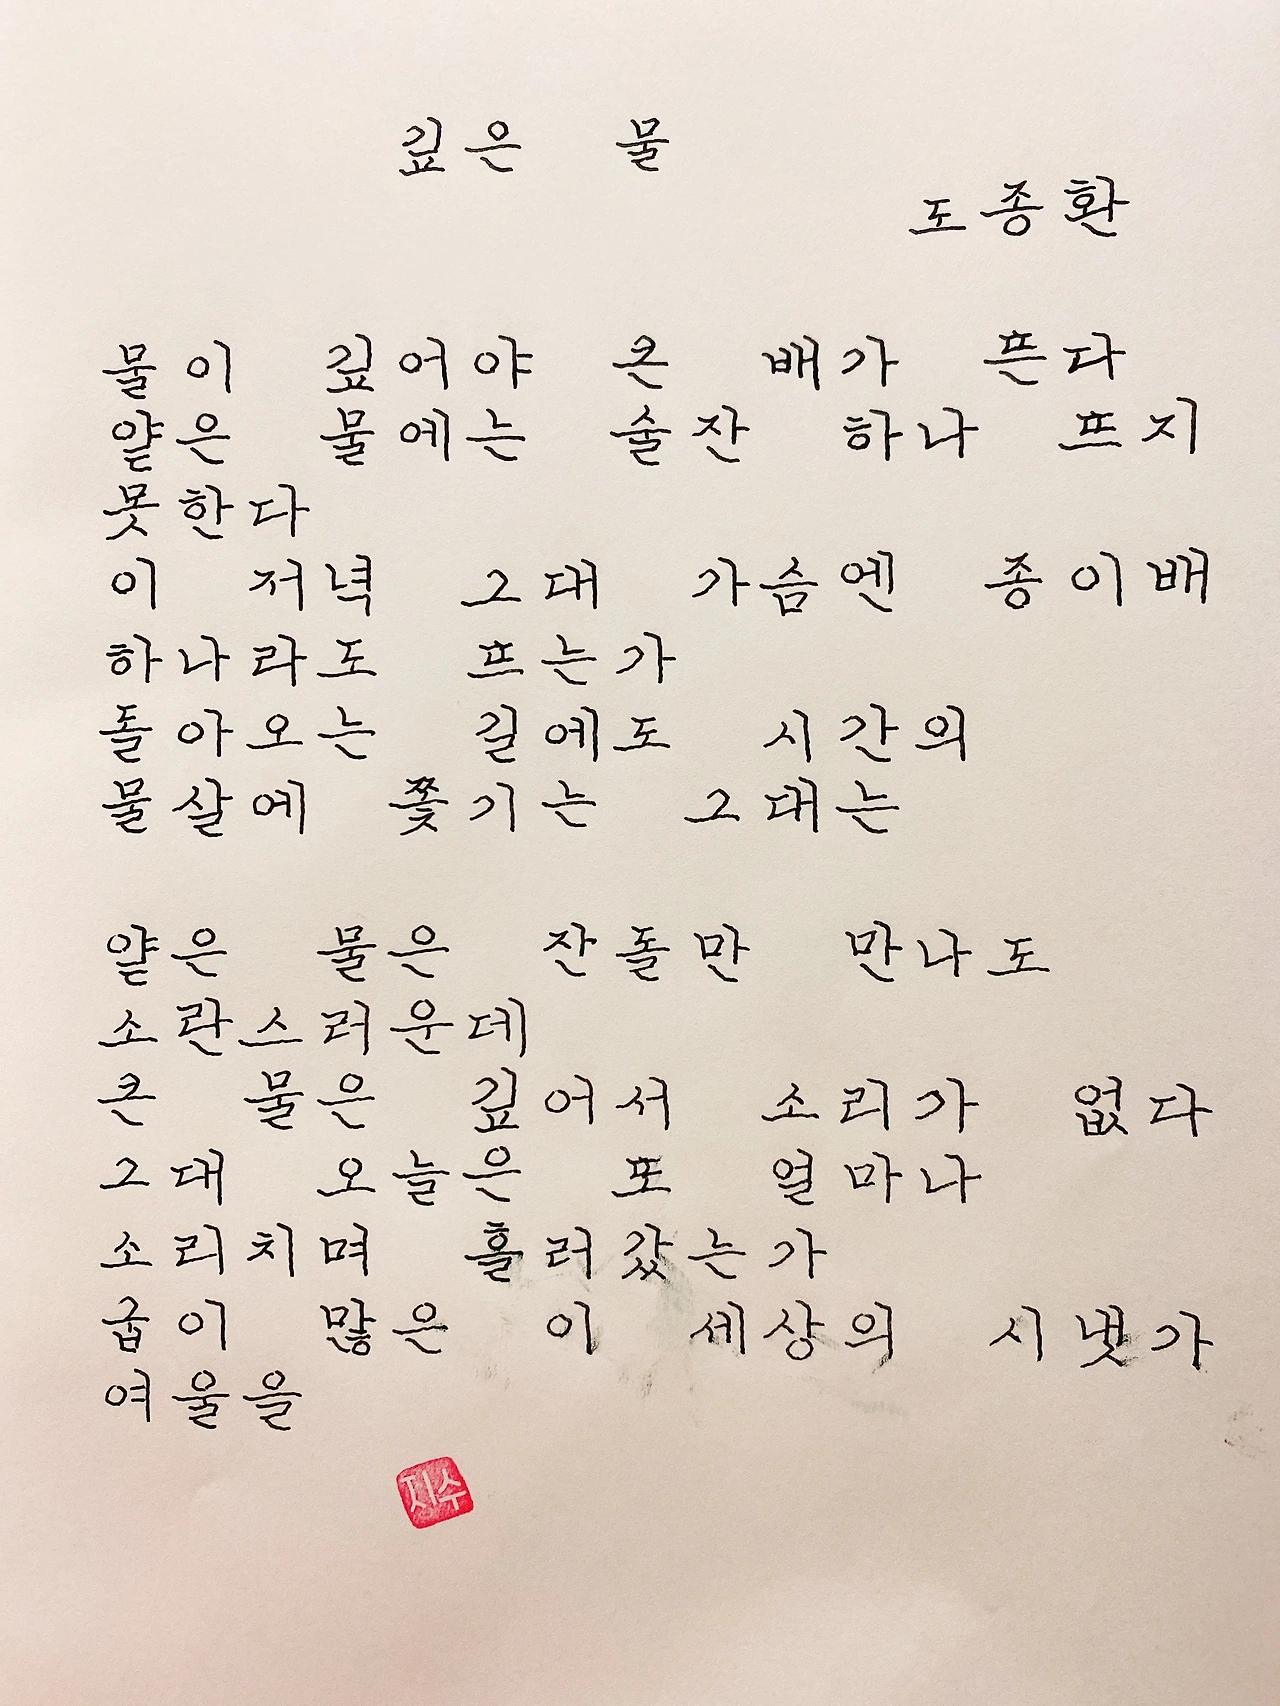 깊은 물
도종환
물이 깊어야 큰 배가 뜬다
얕은 물에는 술잔 하나 뜨지
못한다
이 저녁 그대 가슴엔 종이배
하나라도 뜨는가
돌아오는 길에도 시간의
물살에 쫓기는 그대는
얕은 물은 잔돌만 만나도
소란스러운데
큰 물은 깊어서 소리가 없다
그대 오늘은 또 얼마나
소리치며 흘러갔는가
굽이 많은 이 세상의 시냇가
여울을
지수